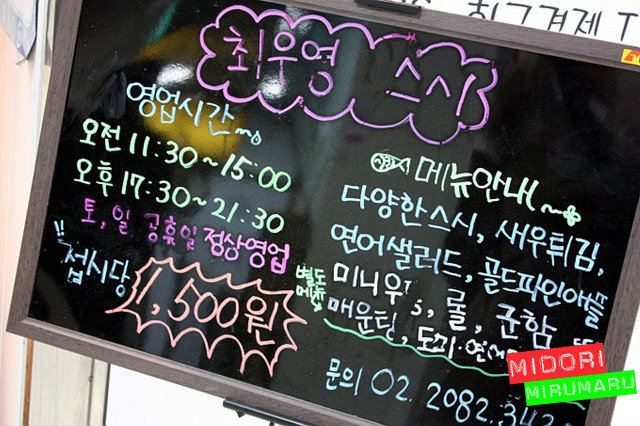 최우영 스시
영업시간
오전 11:30~15:00
오후 17:30~21:30
토, 일 공휴일 정상영업
!! 접시당
1,500원
메뉴안내
다양한스시, 새우튀김,
연어샐러드, 골드파인애플
별도메뉴
미니우동, 롤, 군함
매운탕, 도미·연어
문의 02. 2082.342
MIDORI
MIRUMARU